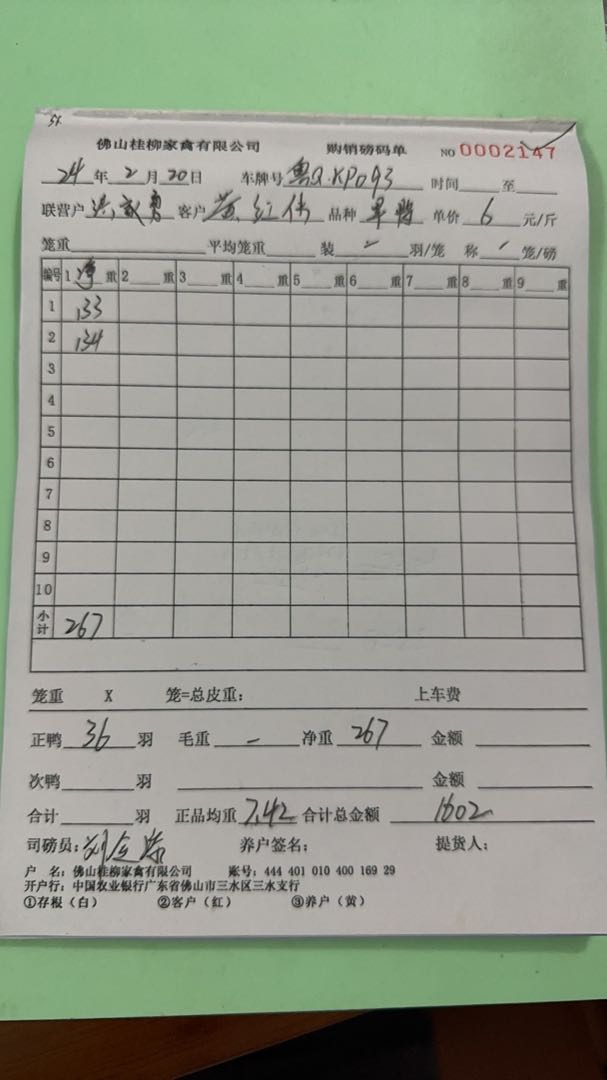 佛山桂柳家禽有限公司 购销磅码单 NO 0002147
24 年 2 月 20 日 车牌号 粤Q.KP093 时间 至
联营户 客户 黄红伟 品种 单价 6 元/斤
笼重 平均笼重 装 - 羽/笼 称 笼/磅
编号 1 净 重 2 重 3 重 4 重 5 重 6 重 7 重 8 重 9 重
1 133
2 134
3
4
5
6
7
8
9
10
小计 267
笼重 X 笼=总皮重: 上车费
正鸭 36 羽 毛重 - 净重 267 金额
次鸭 羽 金额
合计 羽 正品均重 7.42 合计总金额 1602
司磅员: 养户签名: 提货人:
户 名: 佛山桂柳家禽有限公司 账号: 444 401 010 400 169 29
开户行: 中国农业银行广东省佛山市三水区三水支行
①存根（白） ②客户（红） ③养户（黄）